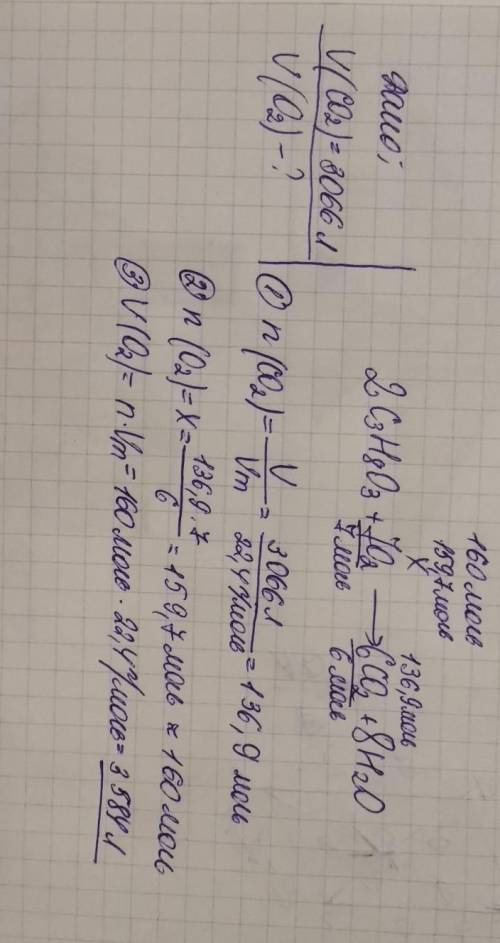 Дано:
V(CO₂)=3066 л
V(O₂)-?
160 моль
159,7 моль
x 136,9 моль
2C₃H₈O₃ + 7O₂ → 6CO₂ + 8H₂O
7 моль 6 моль
① n(CO₂)= V/Vm = 3066 л/22,4 л/моль = 136,9 моль
② n(O₂)=x= 136,9·7/6 = 159,7 моль ≈ 160 моль
③ V(O₂)= n·Vm = 160 моль · 22,4 л/моль = 3584 л